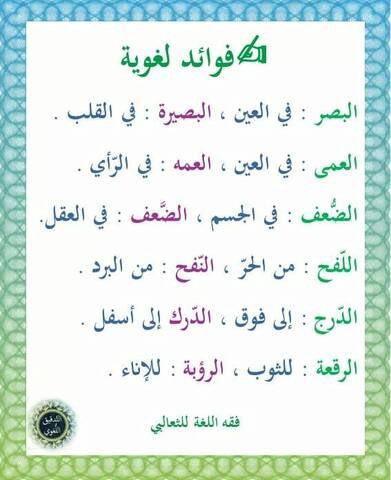 ✍فوائد لغوية
البصر : في العين ، البصيرة : في القلب .
العمى : في العين ، العمه : في الرّأي .
الضُّعف : في الجسم ، الضَّعف : في العقل.
اللّفح : من الحرّ ، النّفح : من البرد .
الدّرج : إلى فوق ، الدّرك إلى أسفل .
الرقعة : للثوب ، الرؤبة : للإناء .
فقه اللغة للثعالبي
التدقيق
اللغوي